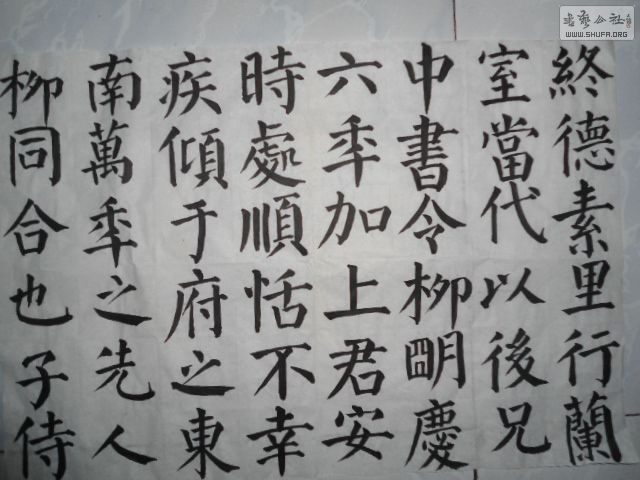 終德素里行蘭
室當代以後兄
中書令柳朙慶
六秊加上君安
時處順恬不幸
疾傾于府之東
南萬秊之先人
柳同合也子侍
WWW.SHUFA.ORG